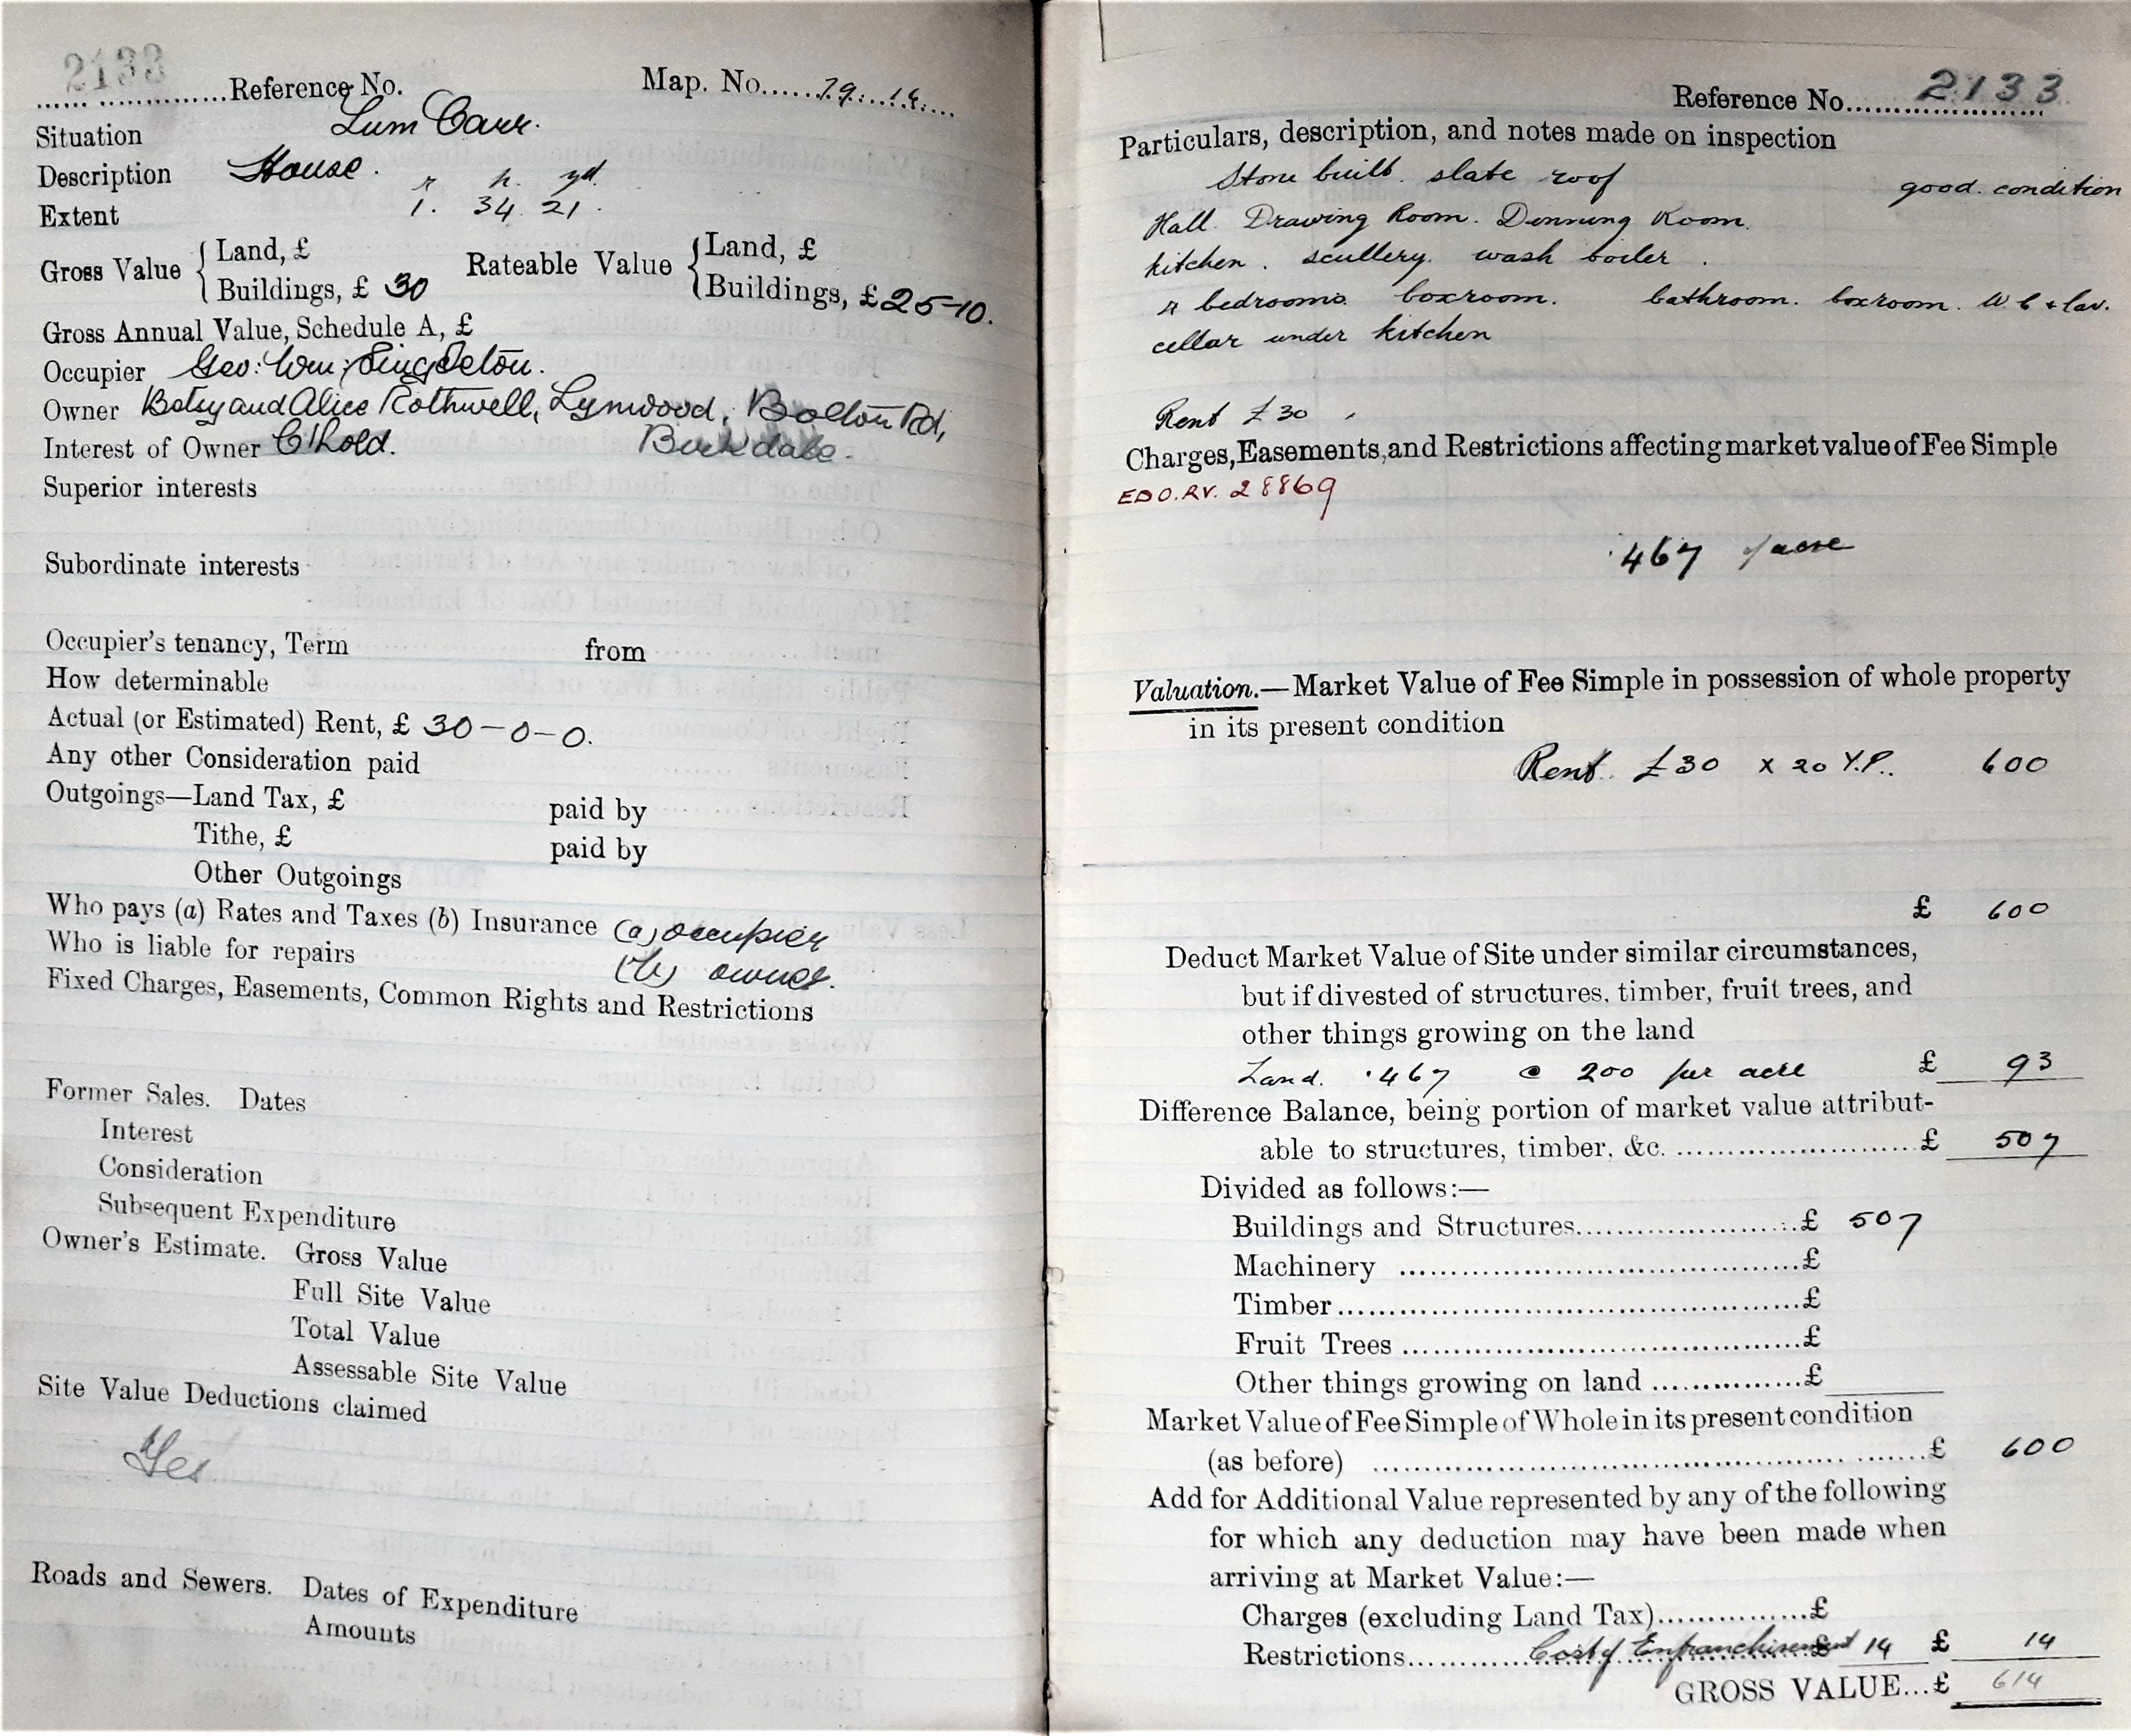 2133
Reference No. Map. No. 79. 14.
Situation Lum Carr.
Description House.
r. p. yd.
Extent 1. 34. 21.
Gross Value { Land, £ Rateable Value { Land, £
Buildings, £ 30 Buildings, £ 25-10.
Gross Annual Value, Schedule A, £
Occupier Geo: Wm: Singleton.
Owner Betsy and Alice Rothwell, Lynwood, Bolton Rd,
Interest of Owner C'hold. Birkdale.
Superior interests
Subordinate interests
Occupier's tenancy, Term from
How determinable
Actual (or Estimated) Rent, £ 30-0-0.
Any other Consideration paid
Outgoings—Land Tax, £ paid by
Tithe, £ paid by
Other Outgoings
Who pays (a) Rates and Taxes (b) Insurance (a) occupier
Who is liable for repairs (b) owner.
Fixed Charges, Easements, Common Rights and Restrictions
Former Sales. Dates
Interest
Consideration
Subsequent Expenditure
Owner's Estimate. Gross Value
Full Site Value
Total Value
Assessable Site Value
Site Value Deductions claimed
Yes
Roads and Sewers. Dates of Expenditure
Amounts
Reference No. 2133
Particulars, description, and notes made on inspection
Stone built. slate roof good. condition
Hall. Drawing Room. Dinning Room.
kitchen. scullery. wash boiler.
bedrooms. boxroom. bathroom. boxroom. W.C & lav.
cellar under kitchen
Rent £30
Charges, Easements, and Restrictions affecting market value of Fee Simple
EDO.RV. 28869
.467 acre
Valuation.—Market Value of Fee Simple in possession of whole property
in its present condition
Rent. £30 x 20 Y.P.. 600
£ 600
Deduct Market Value of Site under similar circumstances,
but if divested of structures, timber, fruit trees, and
other things growing on the land
Land. .467 @ 200 per acre £ 93
Difference Balance, being portion of market value attribut-
able to structures, timber, &c. £ 507
Divided as follows:—
Buildings and Structures £ 507
Machinery £
Timber £
Fruit Trees £
Other things growing on land £
Market Value of Fee Simple of Whole in its present condition
(as before) £ 600
Add for Additional Value represented by any of the following
for which any deduction may have been made when
arriving at Market Value:—
Charges (excluding Land Tax) £
Restrictions Cost of Enfranchisement £ 14 £ 14
GROSS VALUE...£ 614